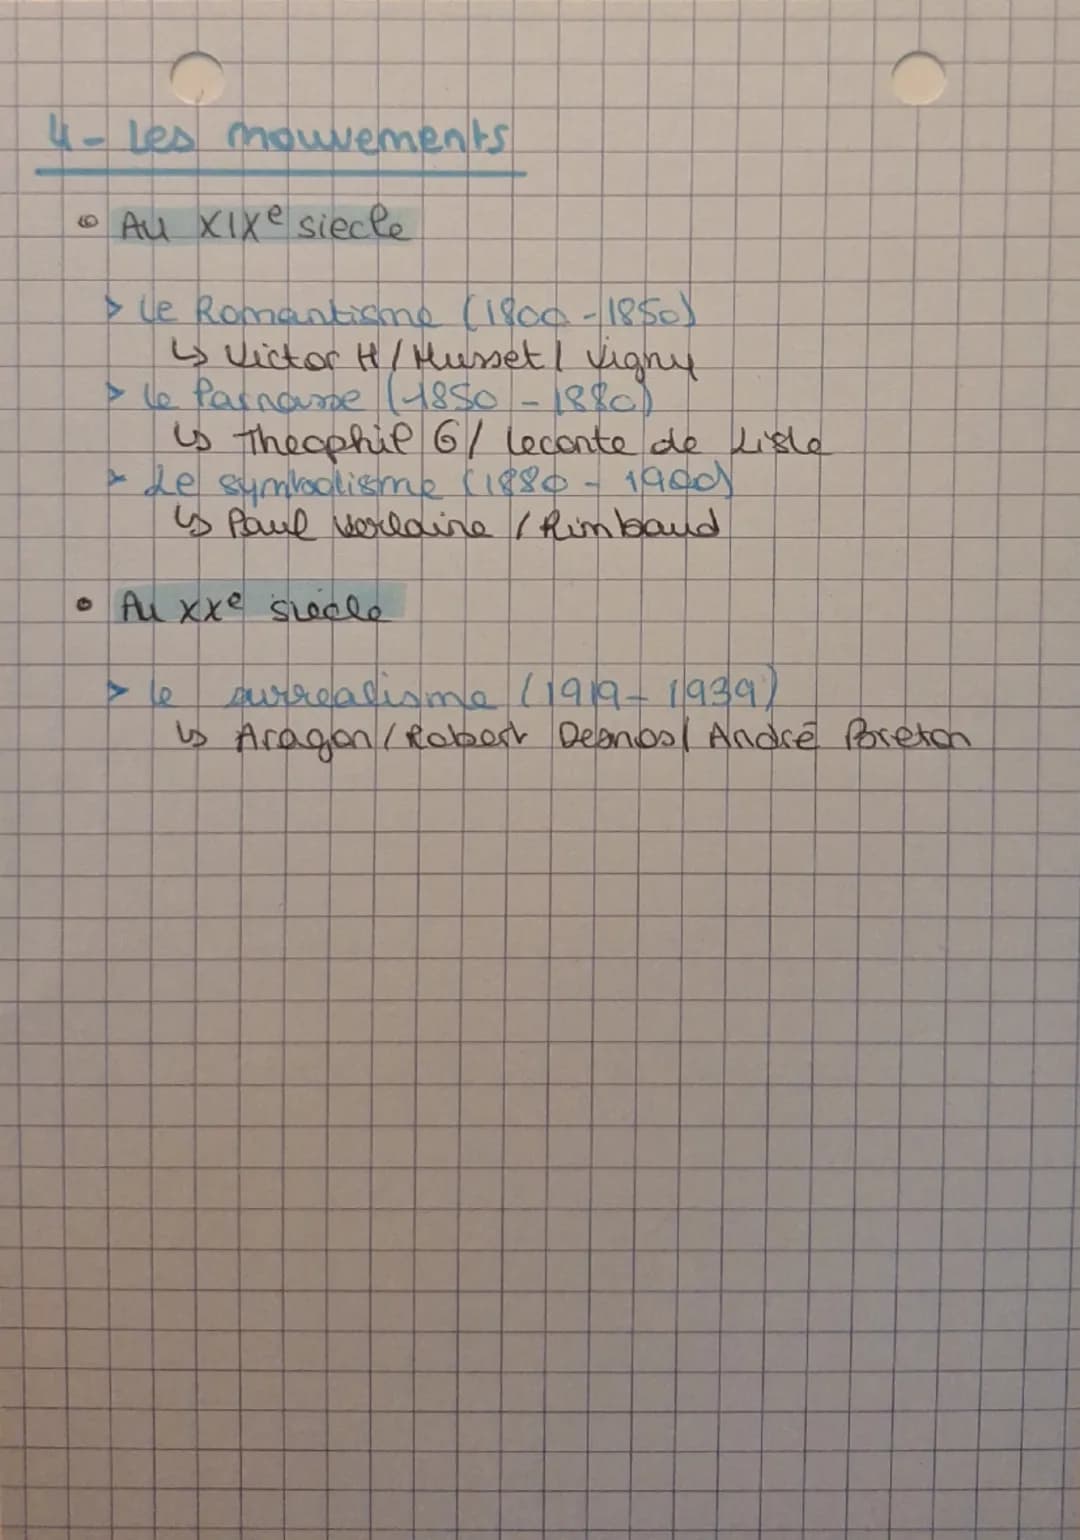 4- Les mouvements
• Au XIXe siecle
> Le Romantisme (1800-1850)
↳ Victor H/Musset/ Vigny
> le Parnasse (1850-1880)
↳ Theophil G/ leconte de Lisle
> Le symbolisme (1880-1900)
↳ Paul Verlaine / Rimbaud
• Au XXe siècle
> le surrealisme (1919-1939)
↳ Aragon/Robert Desnos/ André Breton